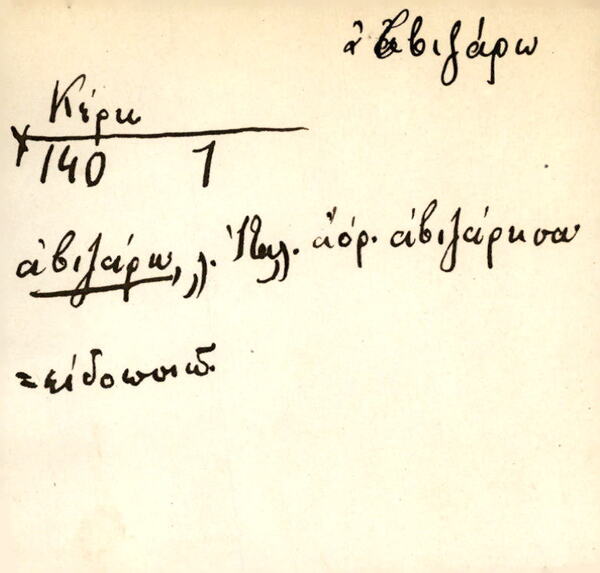 ἀβιζάρω
Κέρκ
140 1
ἀβιζάρω, λ. Ἰταλ. ἀόρ. ἀβιζάρησα
=εἰδοποιῶ.